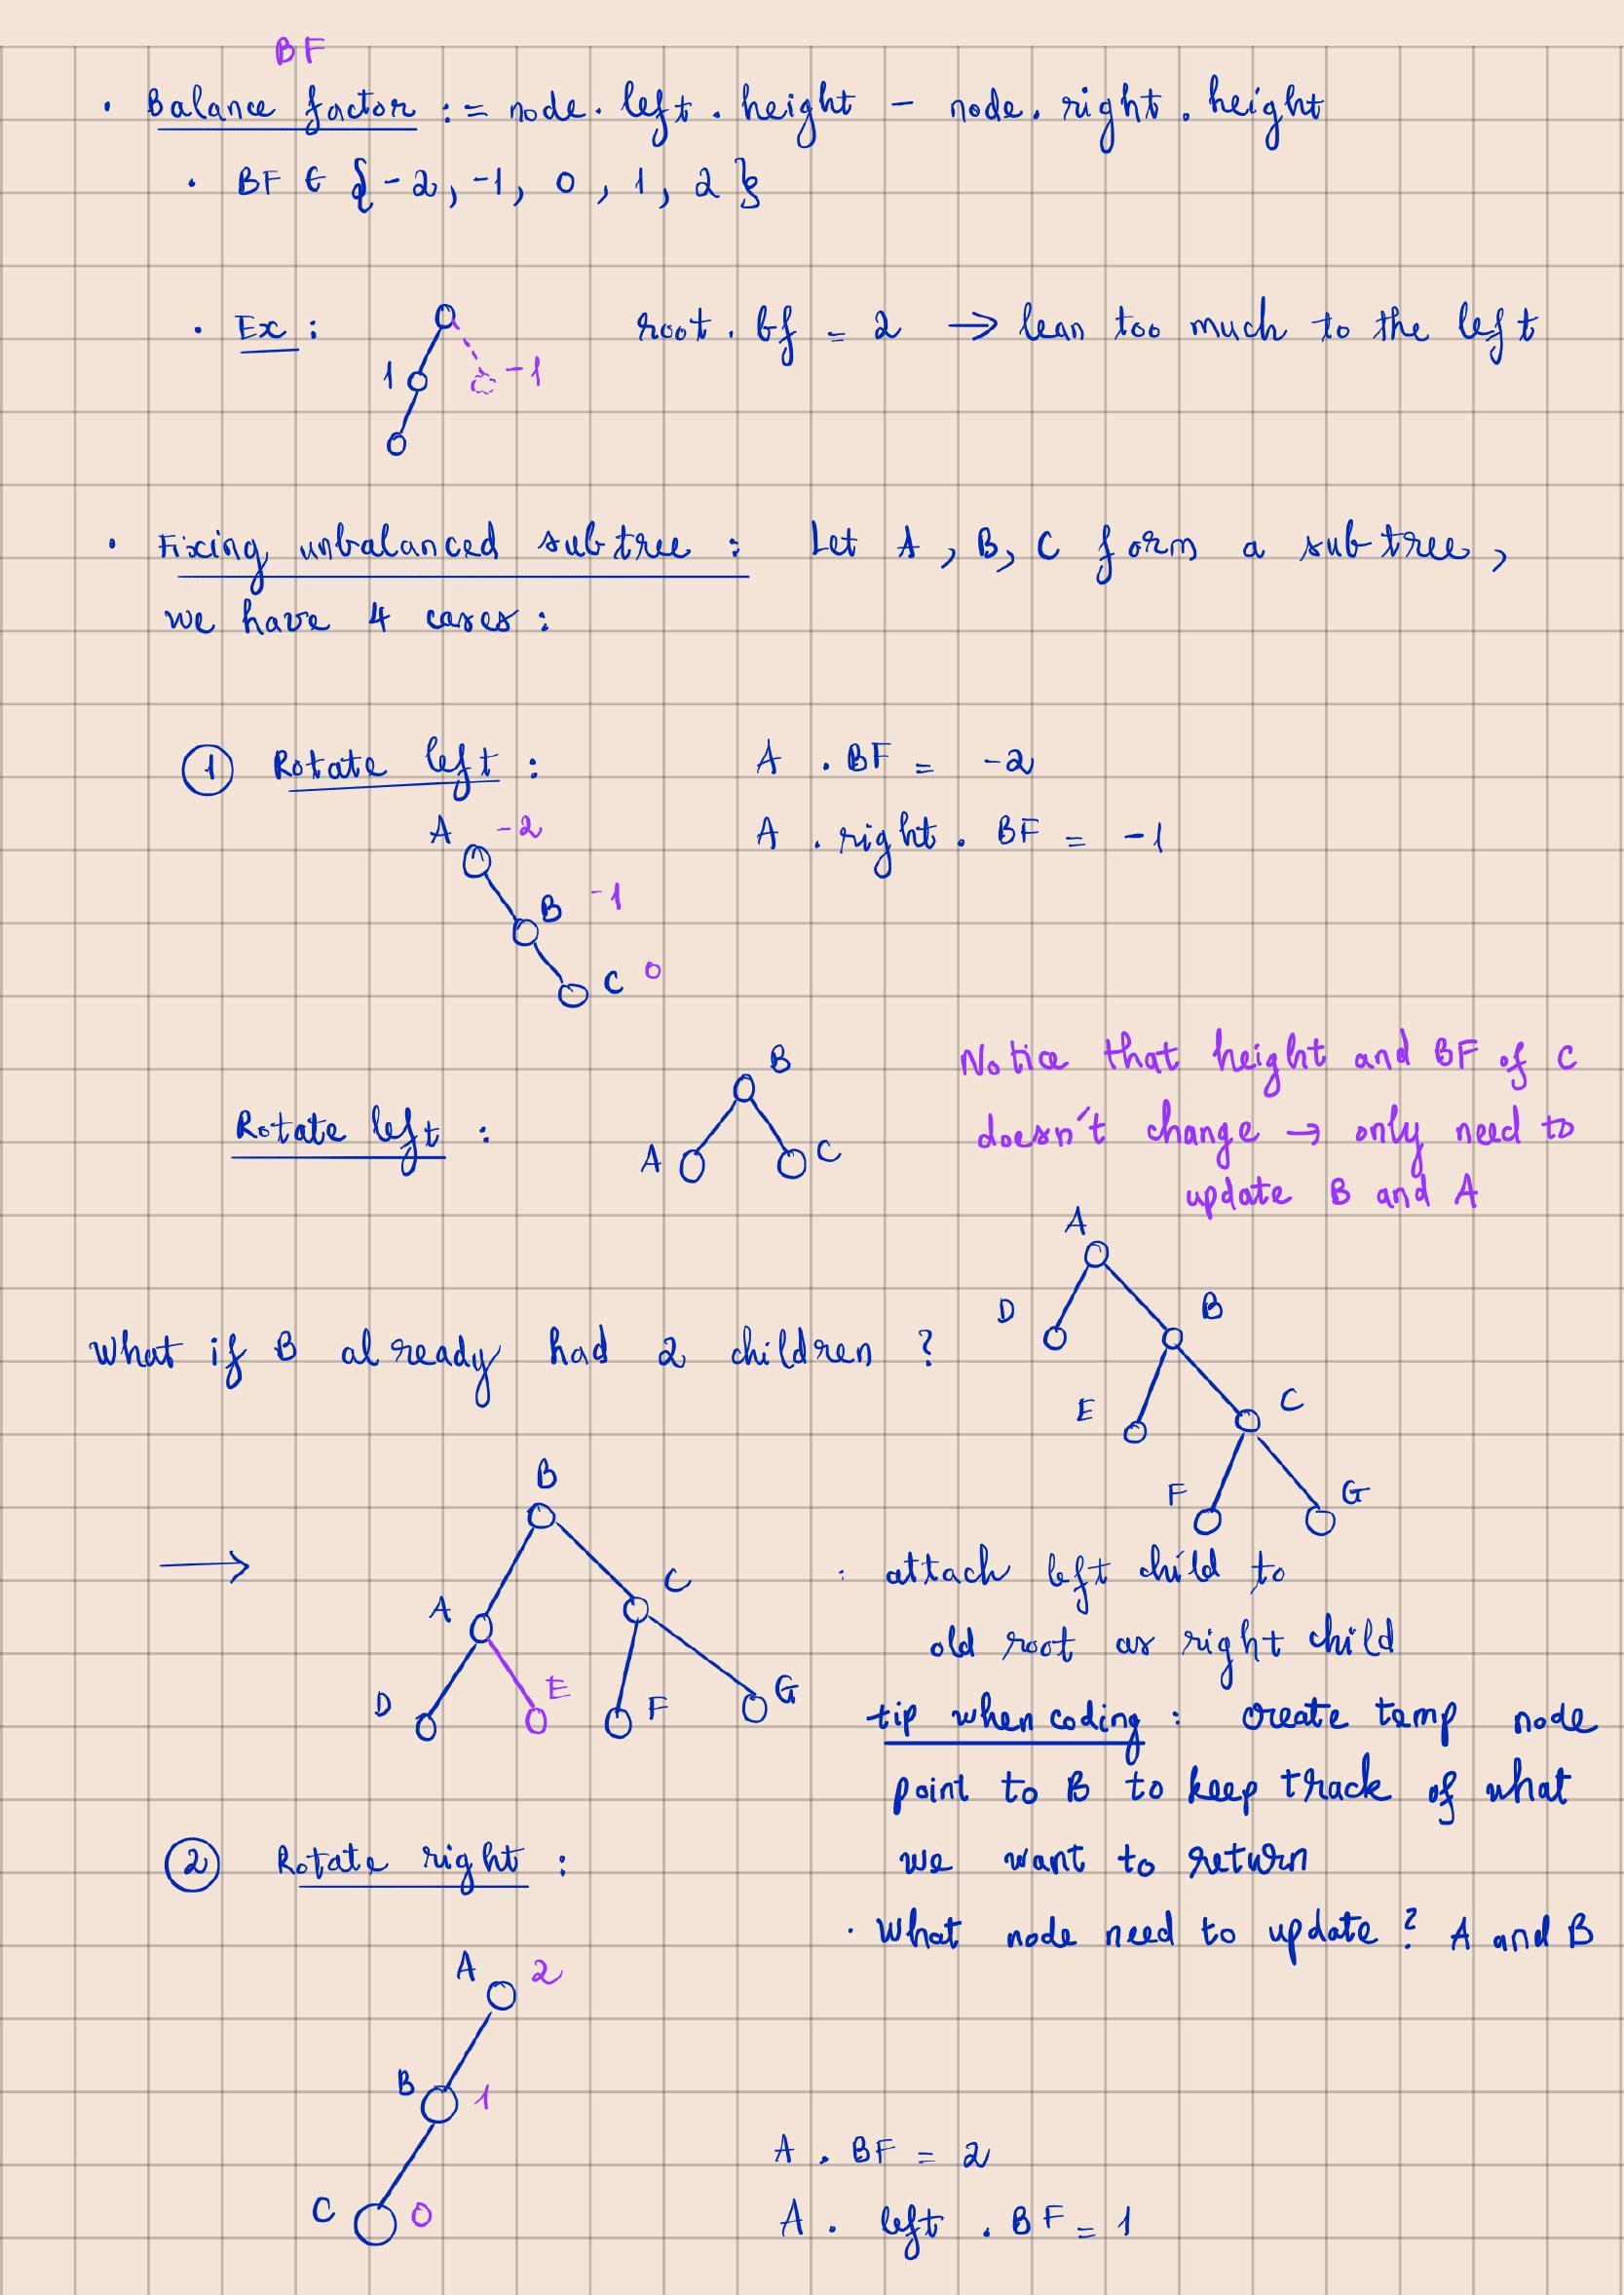 BF
· Balance factor := node.left.height - node.right.height
· BF ∈ {-2, -1, 0, 1, 2}
· Ex:
root.bf = 2 → lean too much to the left
1
-1
· Fixing unbalanced subtree: Let A, B, C form a subtree,
we have 4 cases:
① Rotate left:
A.BF = -2
A -2
A.right.BF = -1
B -1
C 0
Rotate left:
B
A
C
Notice that height and BF of C
doesn't change → only need to
update B and A
What if B already had 2 children?
A
D
B
E
C
F
G
→
B
A
C
D
E
F
G
· attach left child to
old root as right child
tip when coding: create temp node
point to B to keep track of what
we want to return
· What node need to update? A and B
② Rotate right:
A 2
B 1
C 0
A.BF = 2
A.left.BF = 1